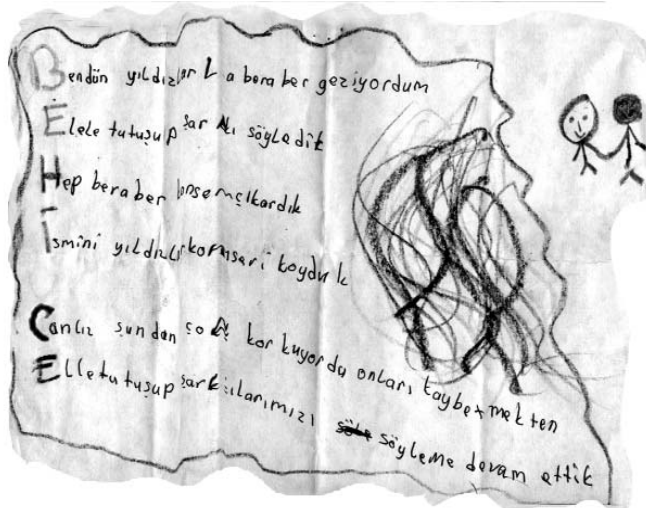 Bendün yıldızlarla beraber geziyordum
Elele tutuşup şarkı söyledik
Hep beraber çıkardık
İsmini yıldızlı koydu k
Canlız şundan çok korkuyordu onları kaybetmekten
Elletutuşup şarkılarımızı söyleme devam ettik